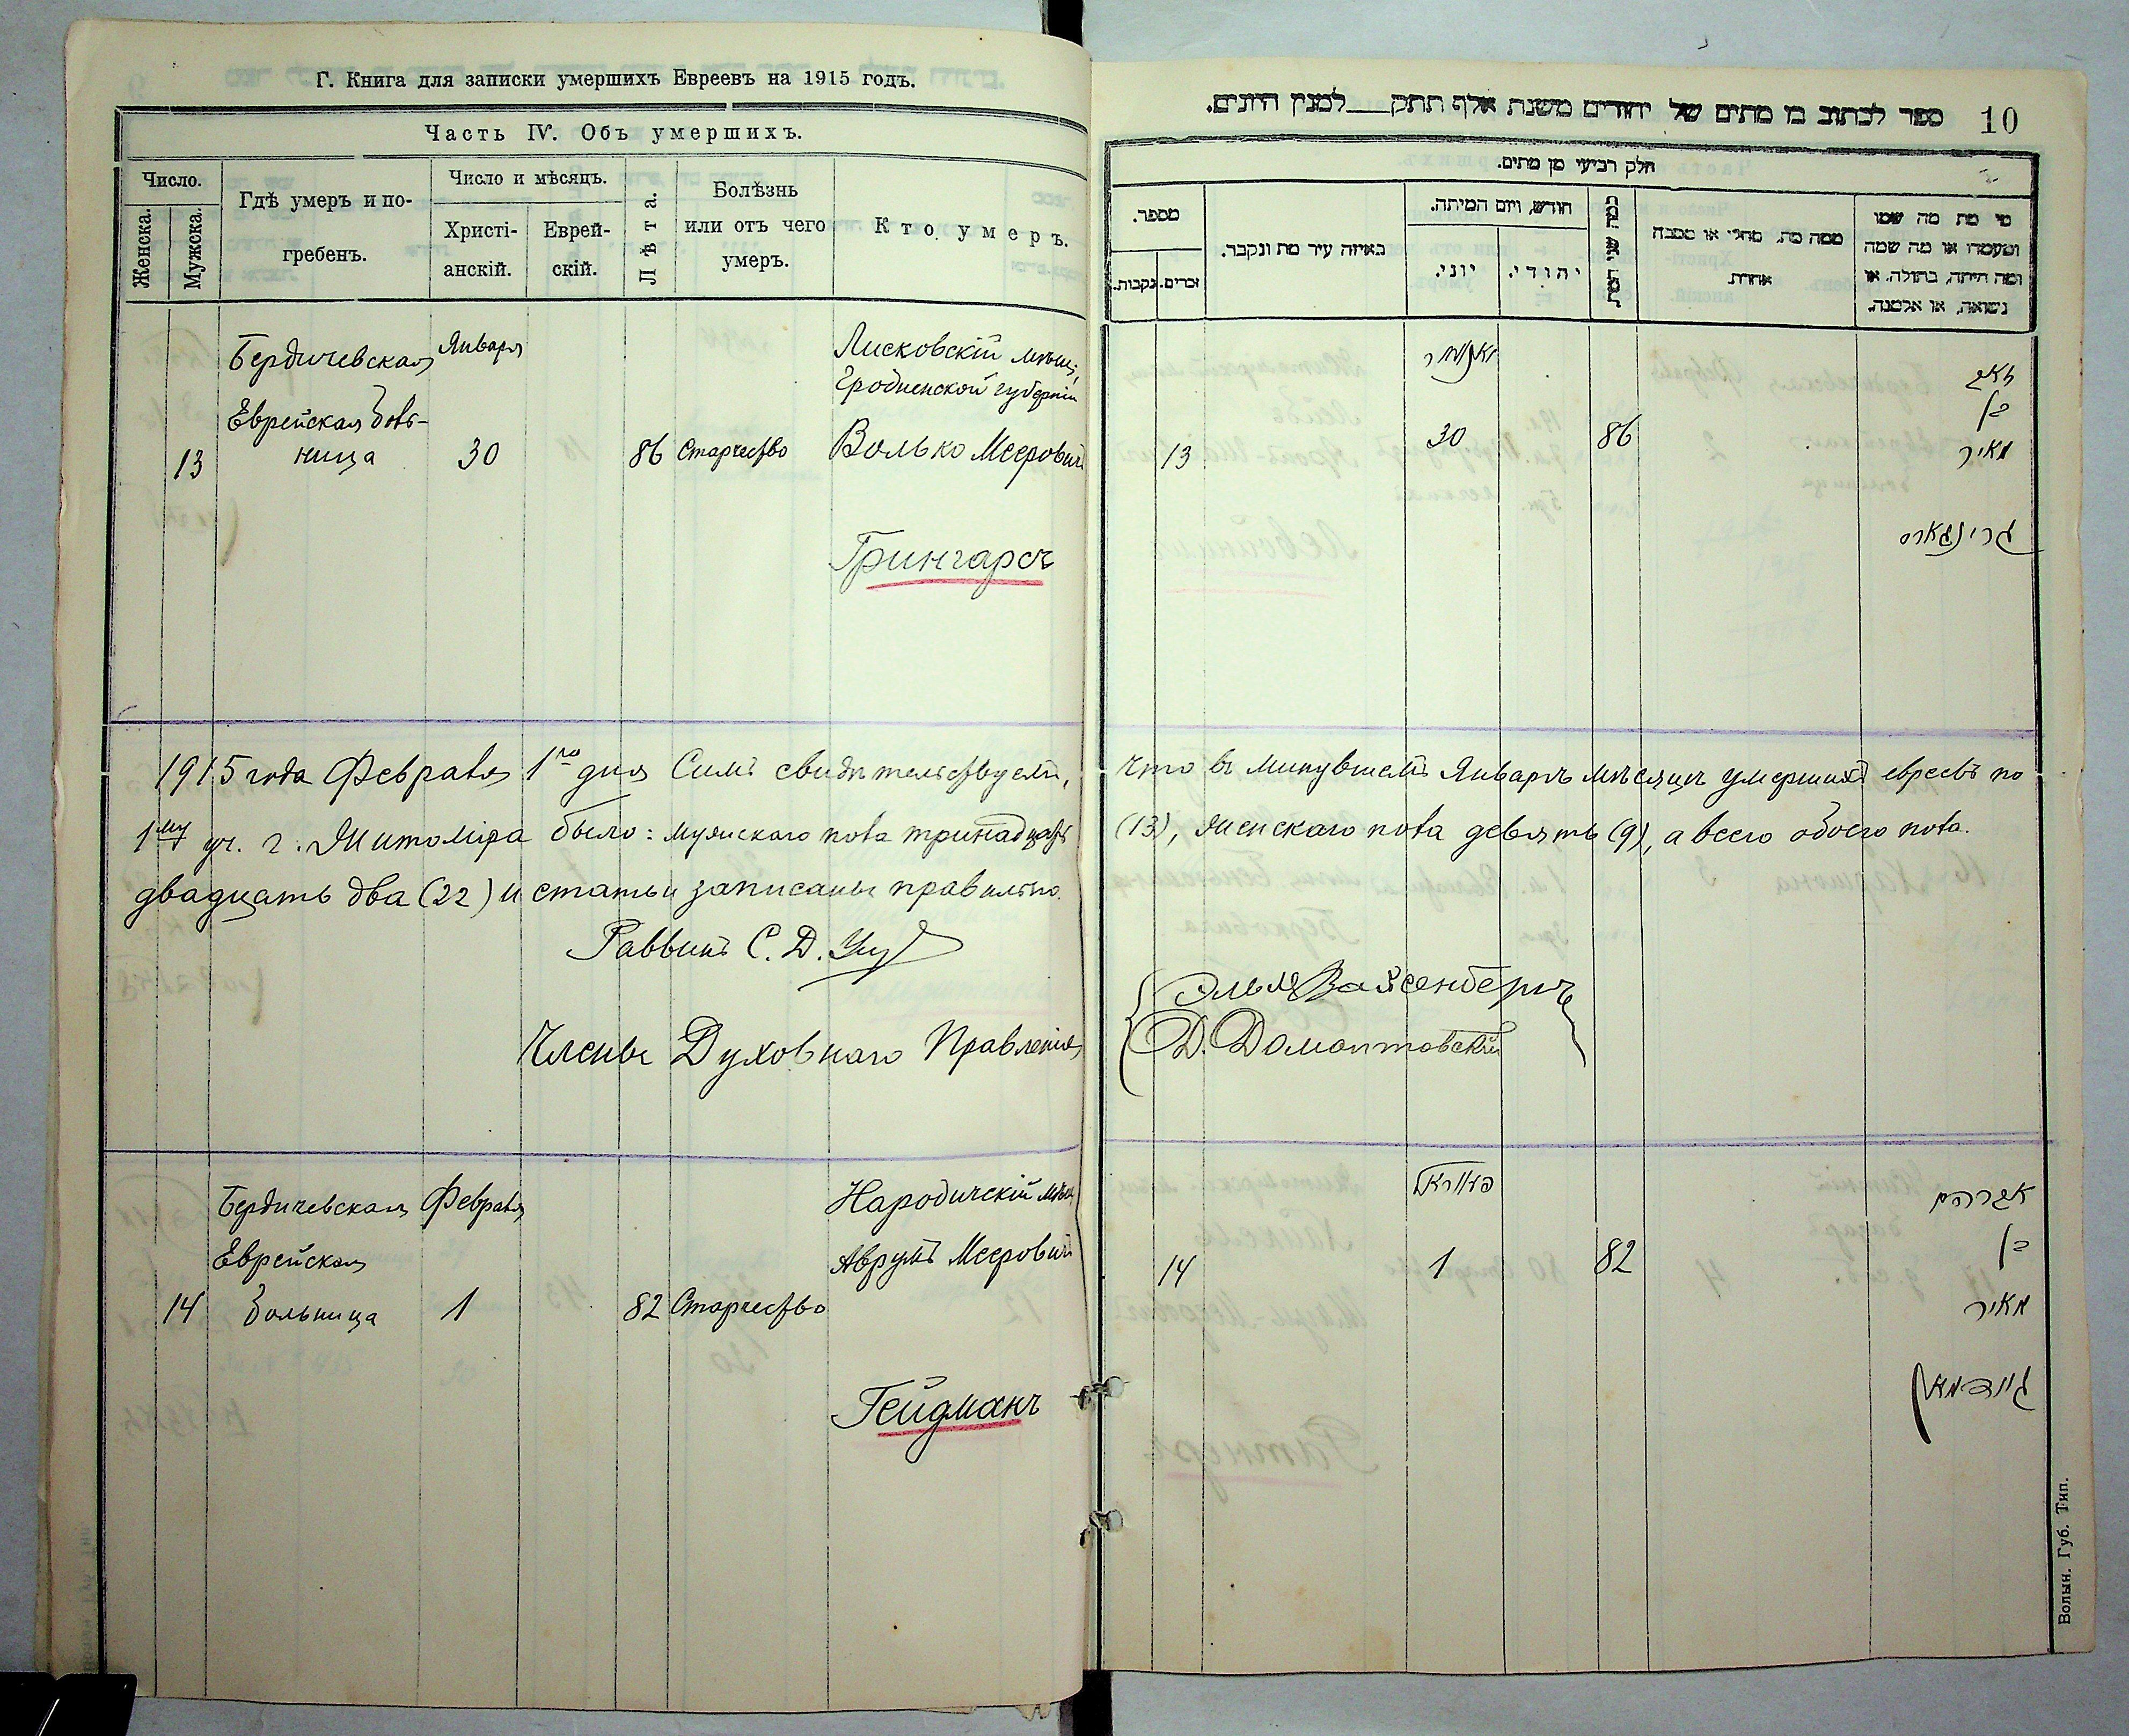 Г. Книга для записки умершихъ Евреевъ на 1915 годъ.
Часть IV. Объ умершихъ.
Число.
Женска.
Мужска.
Гдѣ умеръ и по-
гребенъ.
Число и мѣсяцъ.
Христі-
анскій.
Еврей-
скій.
Лѣта.
Болѣзнь
или отъ чего
умеръ.
Кто умеръ.
Бердичевская
Января
Лисковскій мѣщ.
Гродненской губерніи
Еврейская боль-
ница
13
30
86
Старчество
Волько Мееровичъ
Грингарсъ
1915 года Февраля 1го дня Симъ свидѣтельствуемъ,
1му уч. г. Житоміра было: мужскаго пола тринадцать
двадцать два (22) и статьи записаны правильно.
Раввинъ С. Д.
Члены Духовнаго Правленія
Бердичевская
Февраля
Народичскій мѣщ.
Еврейская
Аврумъ Мееровичъ
14
больница
1
82
Старчество
Гейдманъ
10
ספר לכתוב בו מתים של יהודים משנת אלף תתק למנין היונים.
חלק רביעי מן מתים.
מספר.
נקבות.
זכרים.
באיזה עיר מת ונקבר.
חודש, ויום המיתה.
יוני.
יהודי.
כמה שני המת
ממה מת, מחלי או מסבה
אחרת
מי מת מה שמו
ומעמדו או מה שמה
ומה היתה, בתולה, או
נשואה, או אלמנה.
יאנואר
וואלף
בן
מאיר
13
30
86
גרינגארס
что въ минувшемъ Январѣ мѣсяцѣ умершихъ евреевъ по
(13), женскаго пола девять (9), а всего обоего пола.
Элья Вайсенбергъ
Д. Домонтовскій
פעווראל
אברהם
בן
14
1
82
מאיר
גיידמאן
Волын. Губ. Тип.